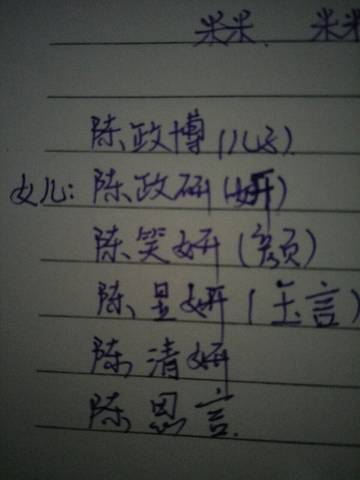 米米、 米米
陈政博(儿子)
女儿:陈政研(妍)
陈笑妍(颜)
陈昱妍(玉言)
陈清妍
陈思言